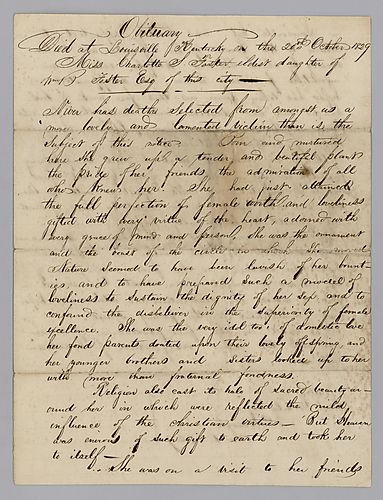 Obituary
Died at Louisville Kentucky on the 20th October 1829
Miss Charlotte S Foster eldest daughter of
Wm B Foster Esq of this city
Never has death selected from amongst us a
more lovely and lamented victim than is the
Subject of this notice Born and nurtured
here she grew up a tender and beautiful plant
the pride of her friends the admiration of all
who knew her. She had just attained
the full perfection of female worth and loveliness
gifted with every virtue of the heart, adorned with
every grace of mind and person, She was the ornament
and the boast of the circle in which She moved
Nature Seemed to have been lavish of her bount-
ies, and to have prepared such a model of
loveliness to sustain the dignity of her sex and to
confound the disbeliever in the superiority of female
excellence. She was the very idol too, of domestic love
her fond parents doated upon their lovely offspring and
her younger brothers and Sisters looked up to her
with more than fraternal fondness.
Religion also cast its halo of sacred beauty ar-
ound her in which were reflected the mild
influence of the christian virtues – But Heaven
was envious of such gift to earth and took her
to itself –
She was on a visit to her friends